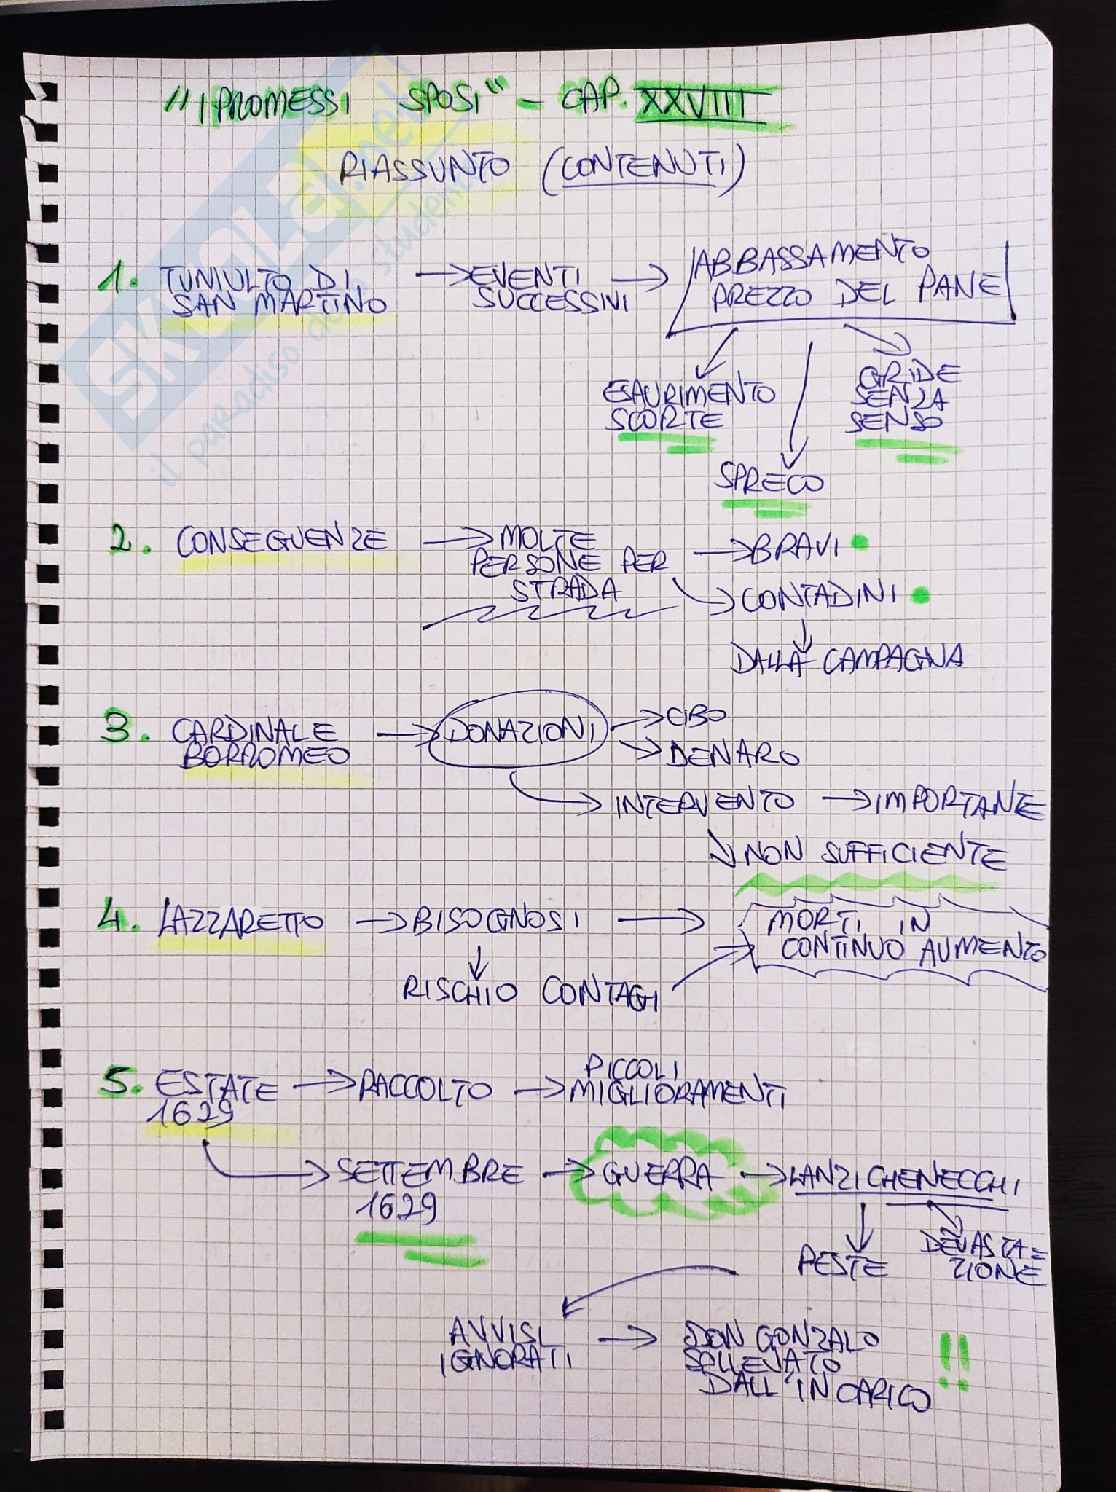 "I PROMESSI SPOSI" - CAP. XXVIII
RIASSUNTO (CONTENUTI)
1. TUMULTO DI
SAN MARTINO
→ EVENTI
SUCCESSIVI
→ ABBASSAMENTO
PREZZO DEL PANE
ESAURIMENTO
SCORTE
SPRECO
GRIDE
SENZA
SENSO
2. CONSEGUENZE
→ MOLTE
PERSONE PER
STRADA
→ BRAVI
→ CONTADINI
DALLA CAMPAGNA
3. CARDINALE
BORROMEO
→ DONAZIONI
→ CIBO
→ DENARO
→ INTERVENTO → IMPORTANTE
NON SUFFICIENTE
4. LAZZARETTO → BISOGNOSI →
MORTI IN
CONTINUO AUMENTO
RISCHIO CONTAGI
5. ESTATE
1629
→ RACCOLTO →
PICCOLI
MIGLIORAMENTI
→ SETTEMBRE
1629
→ GUERRA → LANZICHENECCHI
PESTE
DEVASTA=
ZIONE
AVVISI
IGNORATI
→ DON GONZALO
SOLLEVATO
DALL'INCARICO
!!
SKUOLA.net
il paradiso dello studente